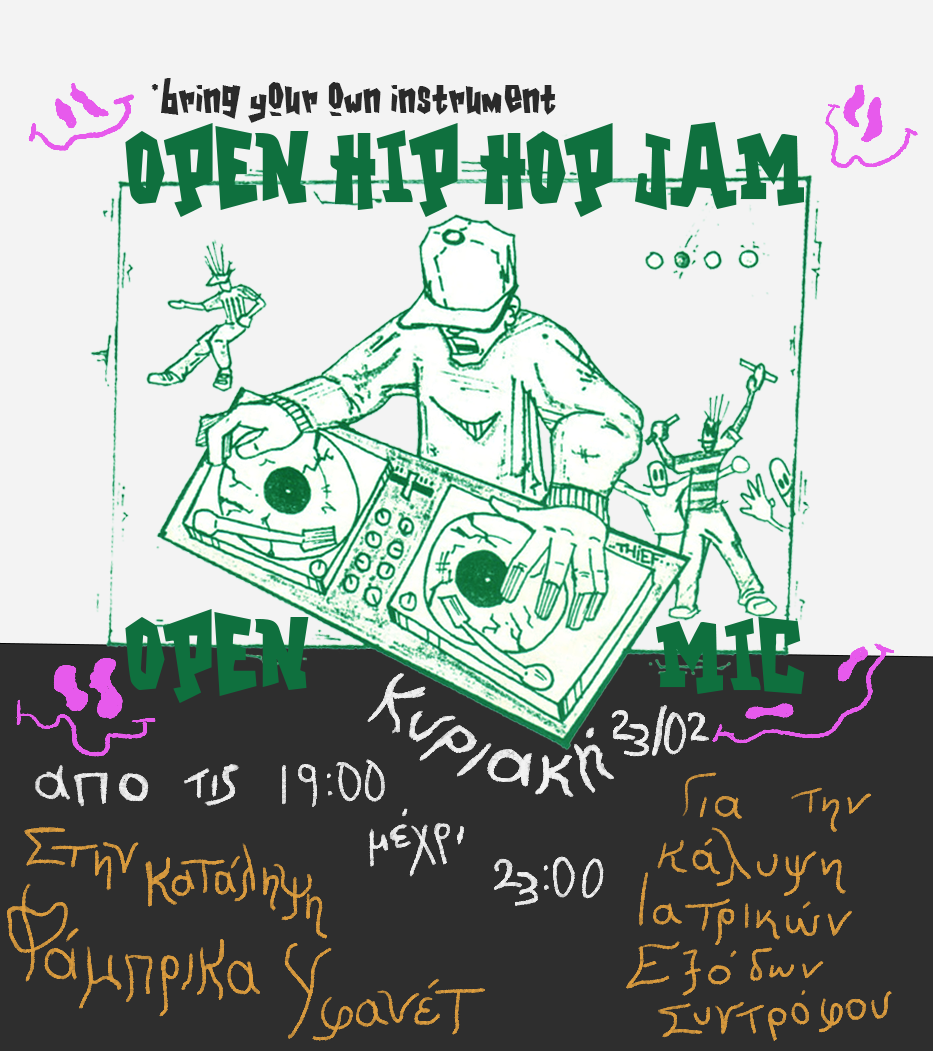 *bring your own instrument
OPEN HIP HOP JAM
THIEF
OPEN MIC
Κυριακή 23/02
απο τις 19:00
μέχρι
23:00
Στην κατάληψη
Φάμπρικα Υφανέτ
Για την
κάλυψη
Ιατρικών
Εξόδων
Συντρόφου